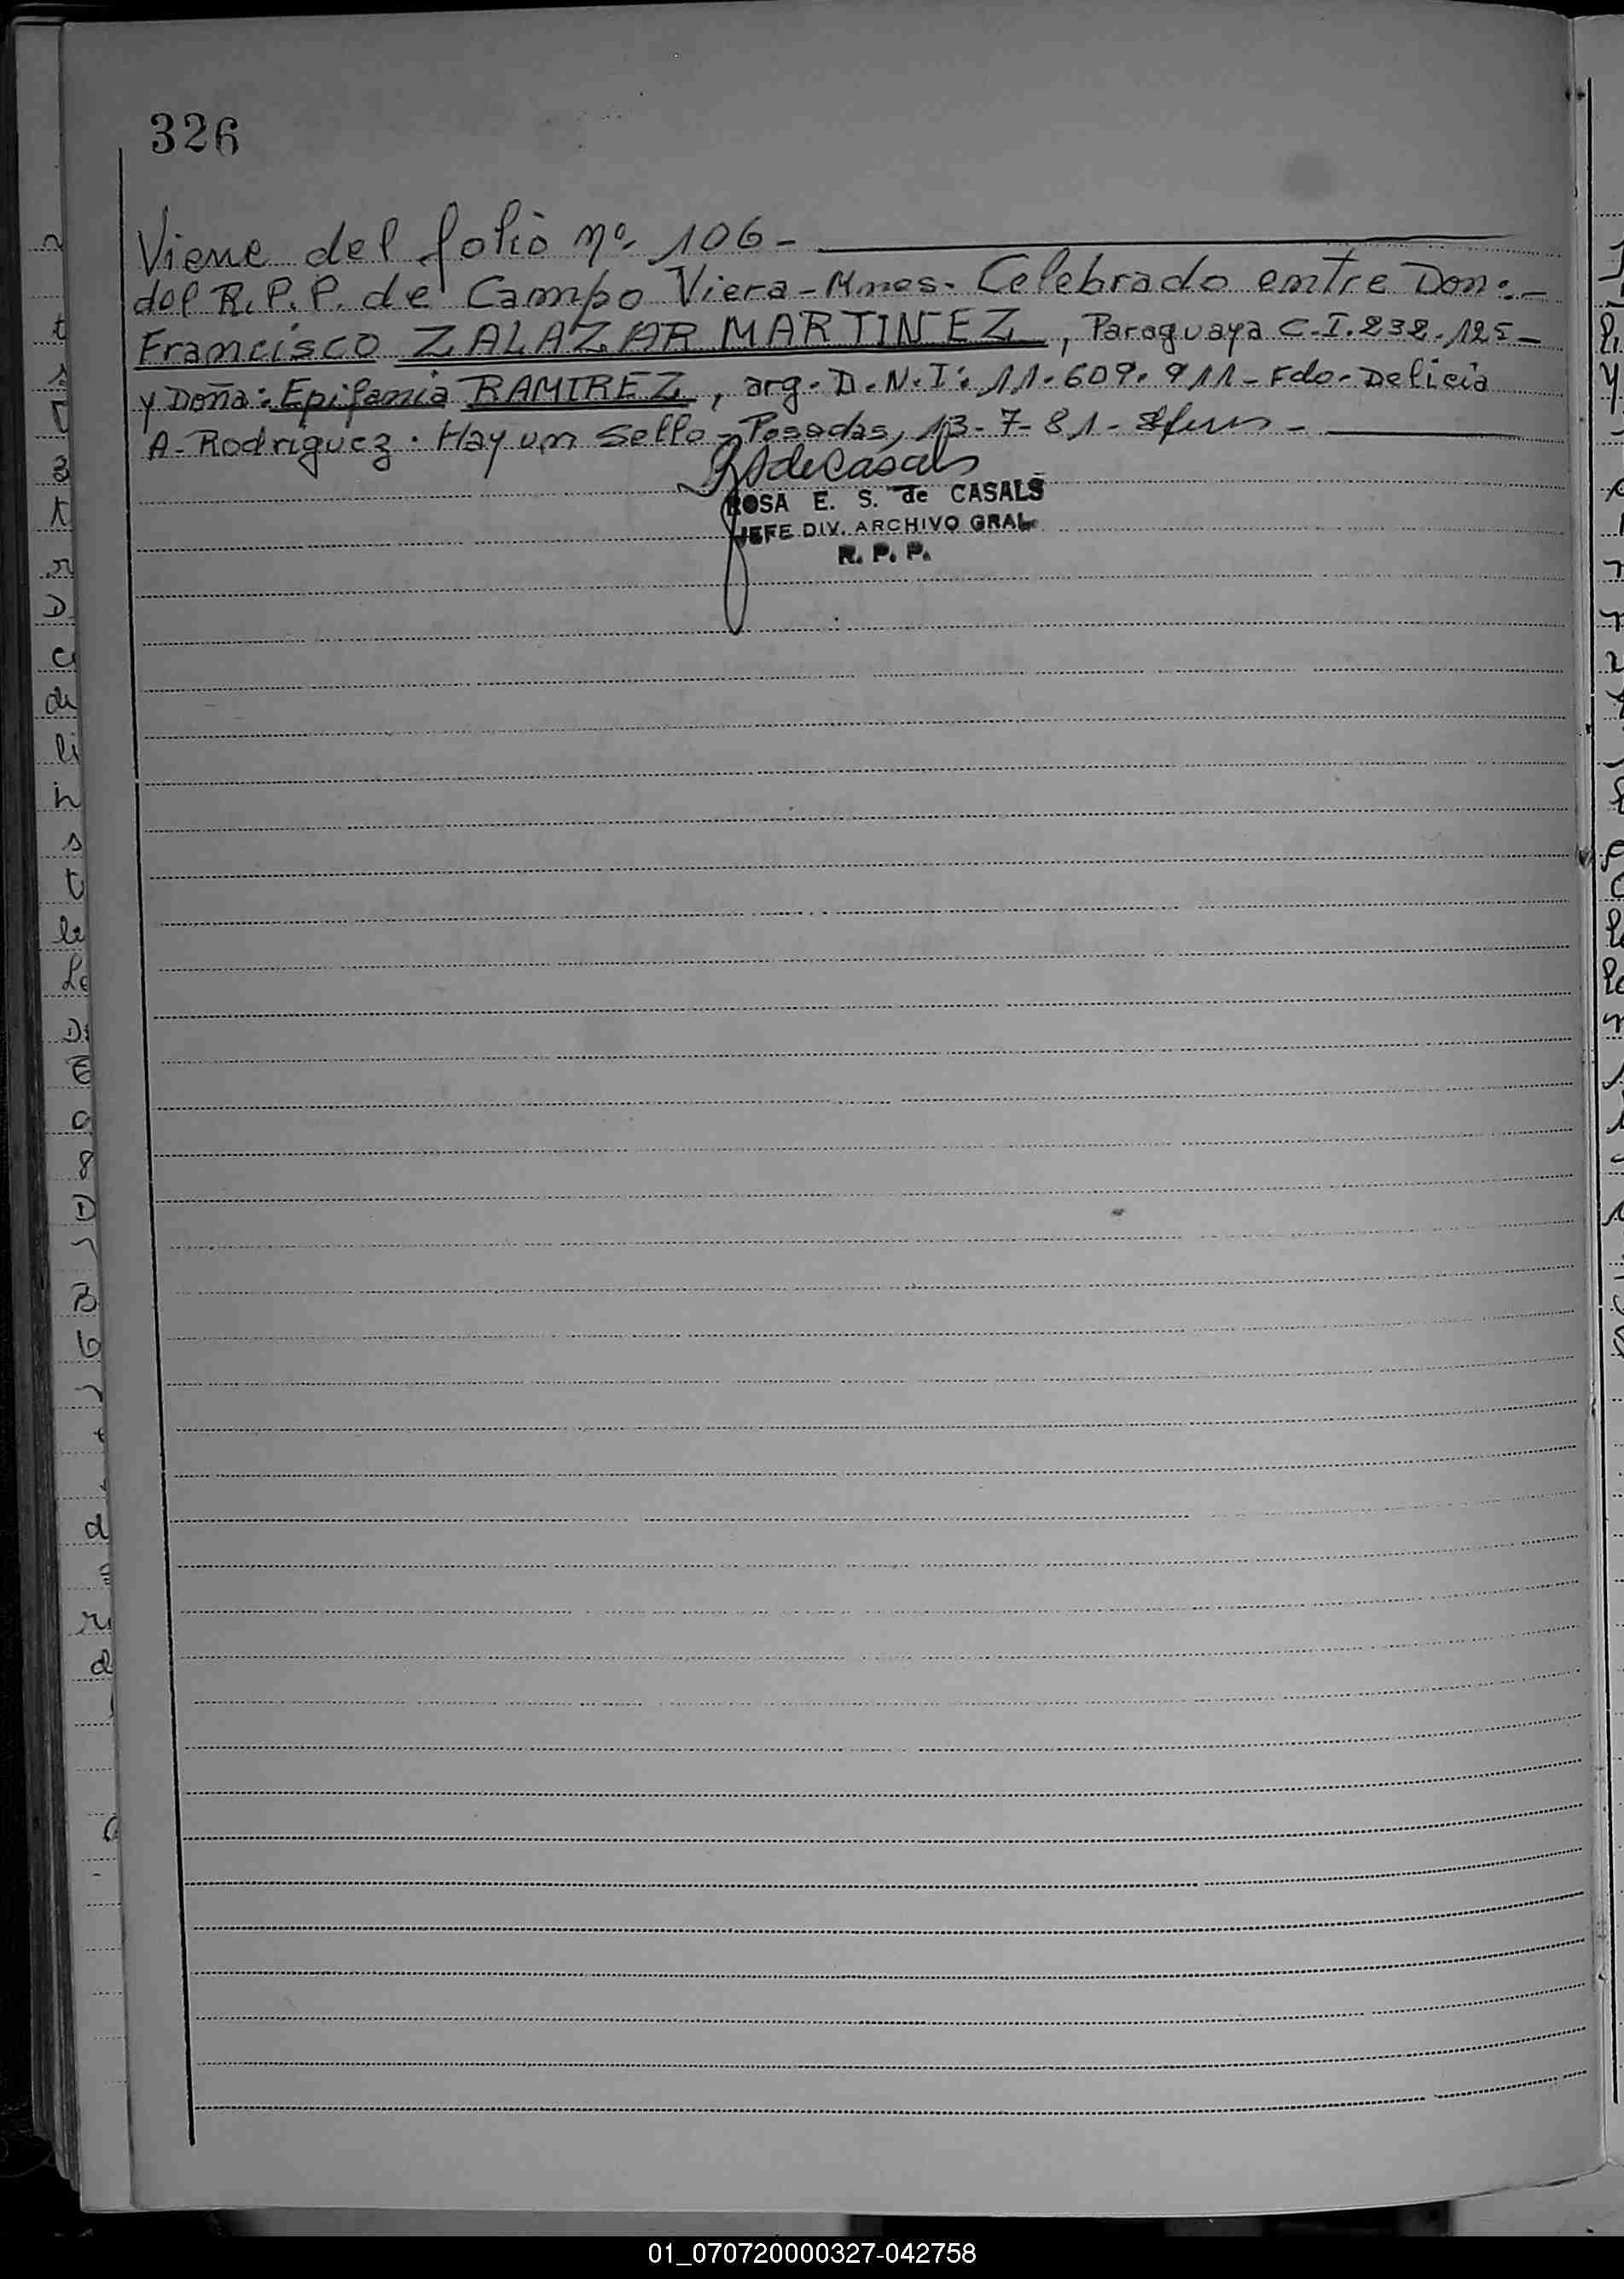 326
Viene del folio nº 106-
del R.P.P. de Campo Viera-Mnes. Celebrado entre Don:-
Francisco ZALAZAR MARTINEZ, Paraguaya C.I. 232.125-
y Doña: Epifania RAMIREZ, arg. D.N.I: 11.609.911-Fdo-Delicia
A-Rodriguez. Hay un Sello-Posadas, 13-7-81-
ROSA E. S. de CASALS
JEFE DIV. ARCHIVO GRAL.
R. P. P.
01_070720000327-042758